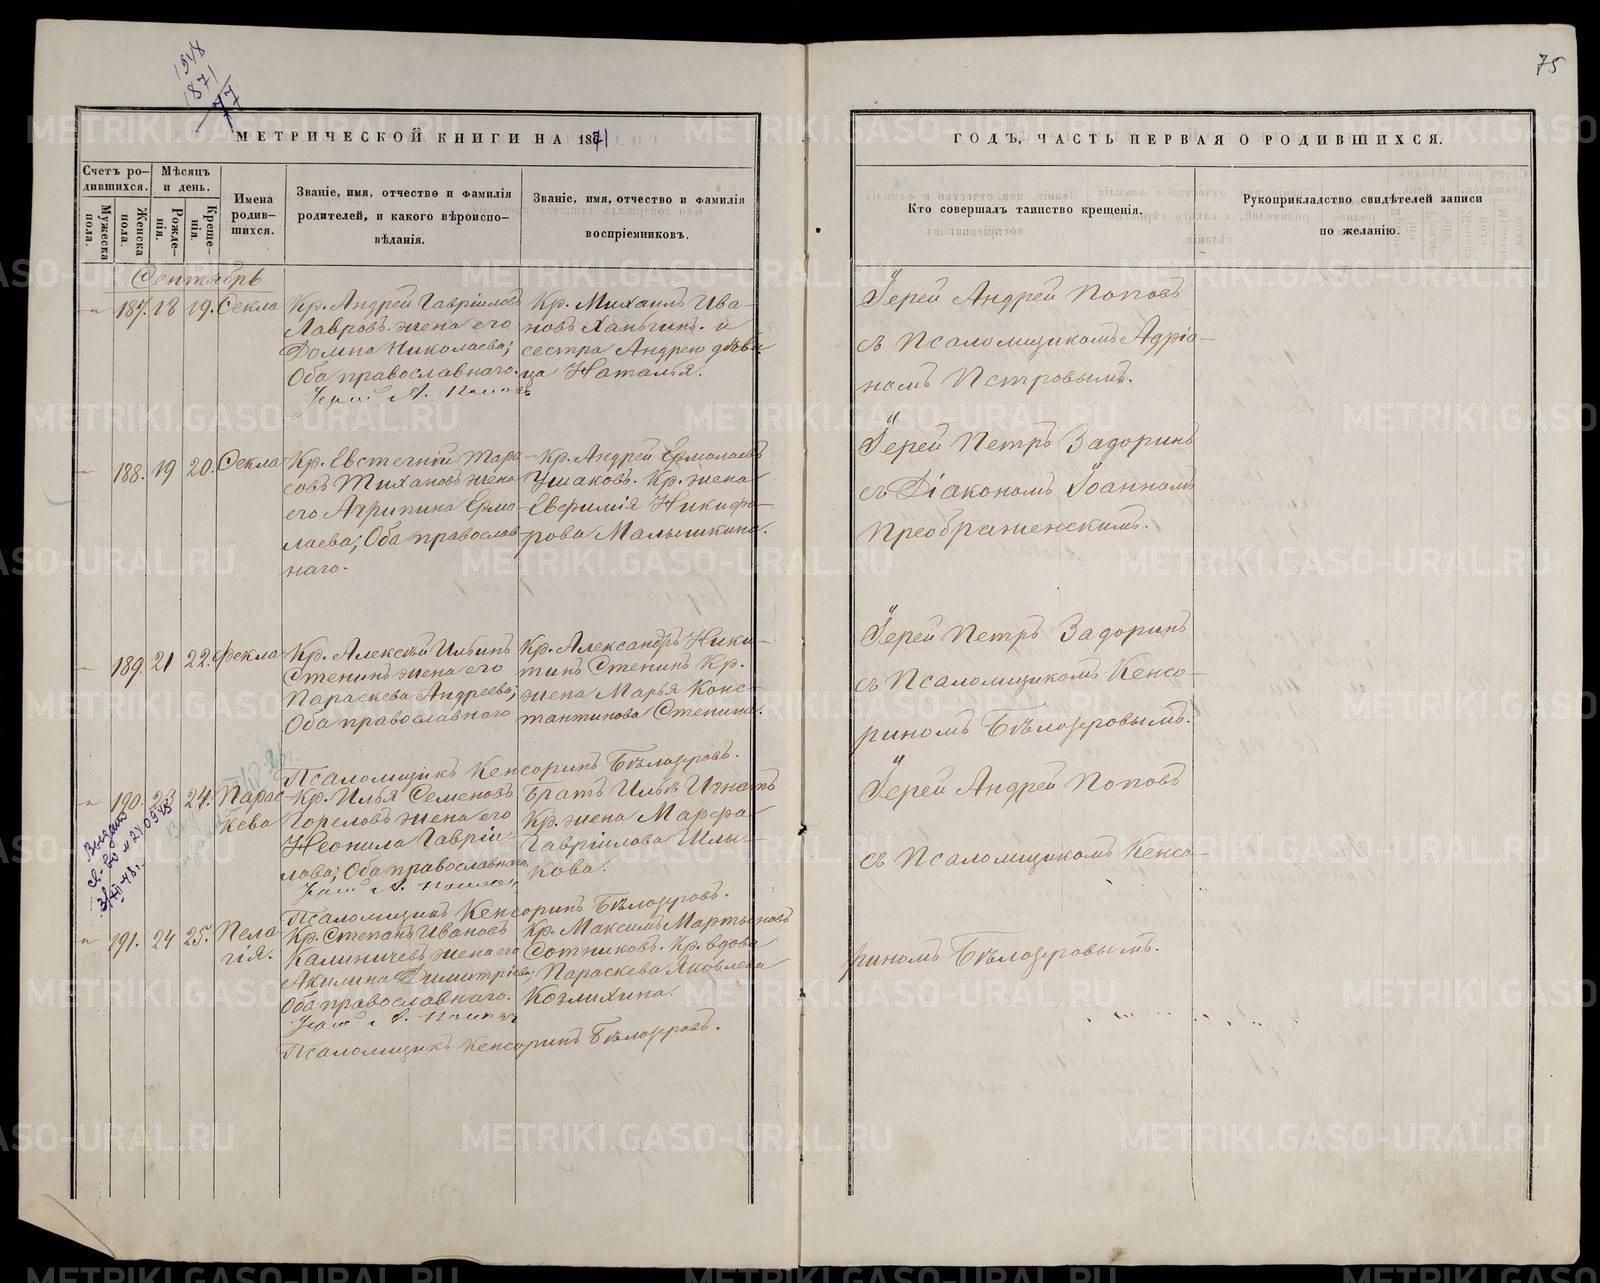 1948
1871
77
75
МЕТРИЧЕСКОЙ КНИГИ НА 1871
ГОДЪ, ЧАСТЬ ПЕРВАЯ О РОДИВШИХСЯ.
Счетъ ро-
дившихся.
Мужеска
пола.
Женска
пола.
Мѣсяцъ
и день.
Рожде-
нія.
Креще-
нія.
Имена
родив-
шихся.
Званіе, имя, отчество и фамилія
родителей, и какого вѣроиспо-
вѣданія.
Званіе, имя, отчество и фамилія
воспріемниковъ.
Кто совершалъ таинство крещенія.
Рукоприкладство свидѣтелей записи
по желанію.
Сентябрь
187. 18 19. Секла
Кр. Андрей Гавріиловъ
Лавровъ. жена его
Домна Николаева;
Оба православнаго.
Кр. Михаилъ Ива-
новъ Ханьгинъ. и
сестра Андрею дѣви
ца Наталья.
Іерей Андрей Поповъ
съ Псаломщикомъ Адріа-
номъ Петровымъ.
188. 19 20. Секла
Кр. Евстегній Тара
совъ Тихановъ жена
его Агрипина Ермо-
лаева; Оба православ-
наго.
Кр. Андрей Ермолаевъ
Ушаковъ. Кр. жена
Евфимія Никифо-
рова Малышкина.
Іерей Петръ Задоринъ
съ Діакономъ Іоанномъ
Преображенскимъ.
189. 21 22. Фекла
Кр. Алексѣй Ильинъ
Стенинъ жена его
Параскева Андреева;
Оба православнаго
Кр. Александръ Ники-
тинъ Стенинъ Кр.
жена Марья Конс-
тантинова Стенина.
Псаломщикъ Кенсоринъ Бѣлозеровъ.
Іерей Петръ Задоринъ
съ Псаломщикомъ Кенсо-
риномъ Бѣлозеровымъ.
190. 23 24. Парас-
кева
Кр. Илья Семеновъ
Гореловъ жена его
Неонила Гавріи-
лова; Оба православнаго.
Братъ Ильѣ Игнатъ
Кр. жена Марфа
Гавріилова Шлы-
кова.
Псаломщикъ Кенсоринъ Бѣлозеровъ.
Іерей Андрей Поповъ
съ Псаломщикомъ Кенсо-
риномъ Бѣлозеровымъ.
191. 24 25. Пела
гія.
Кр. Степанъ Ивановъ
Калиничевъ жена его
Акилина Димитріева;
Оба православнаго.
Кр. Максимъ Мартыновъ
Сотниковъ. Кр. вдова
Параскева Яковлева
Козлихина.
Псаломщикъ Кенсоринъ Бѣлозеровъ.
METRIKI.GASO-URAL.RU